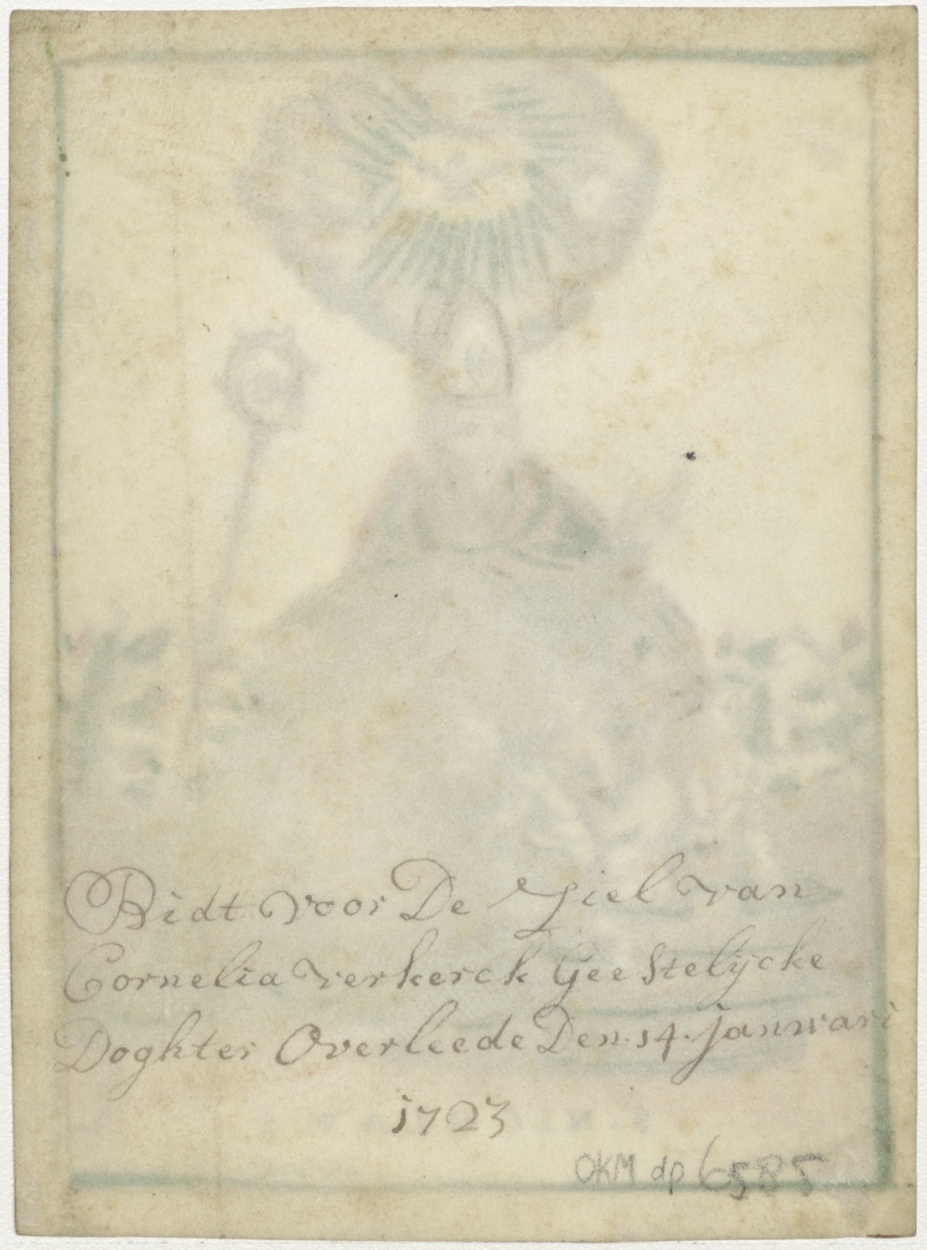 Bidt voor De Ziel van
Cornelia verkerck Geestelijcke
Doghter Overleede Den. 14. Januari
1723
OKM dp 6585